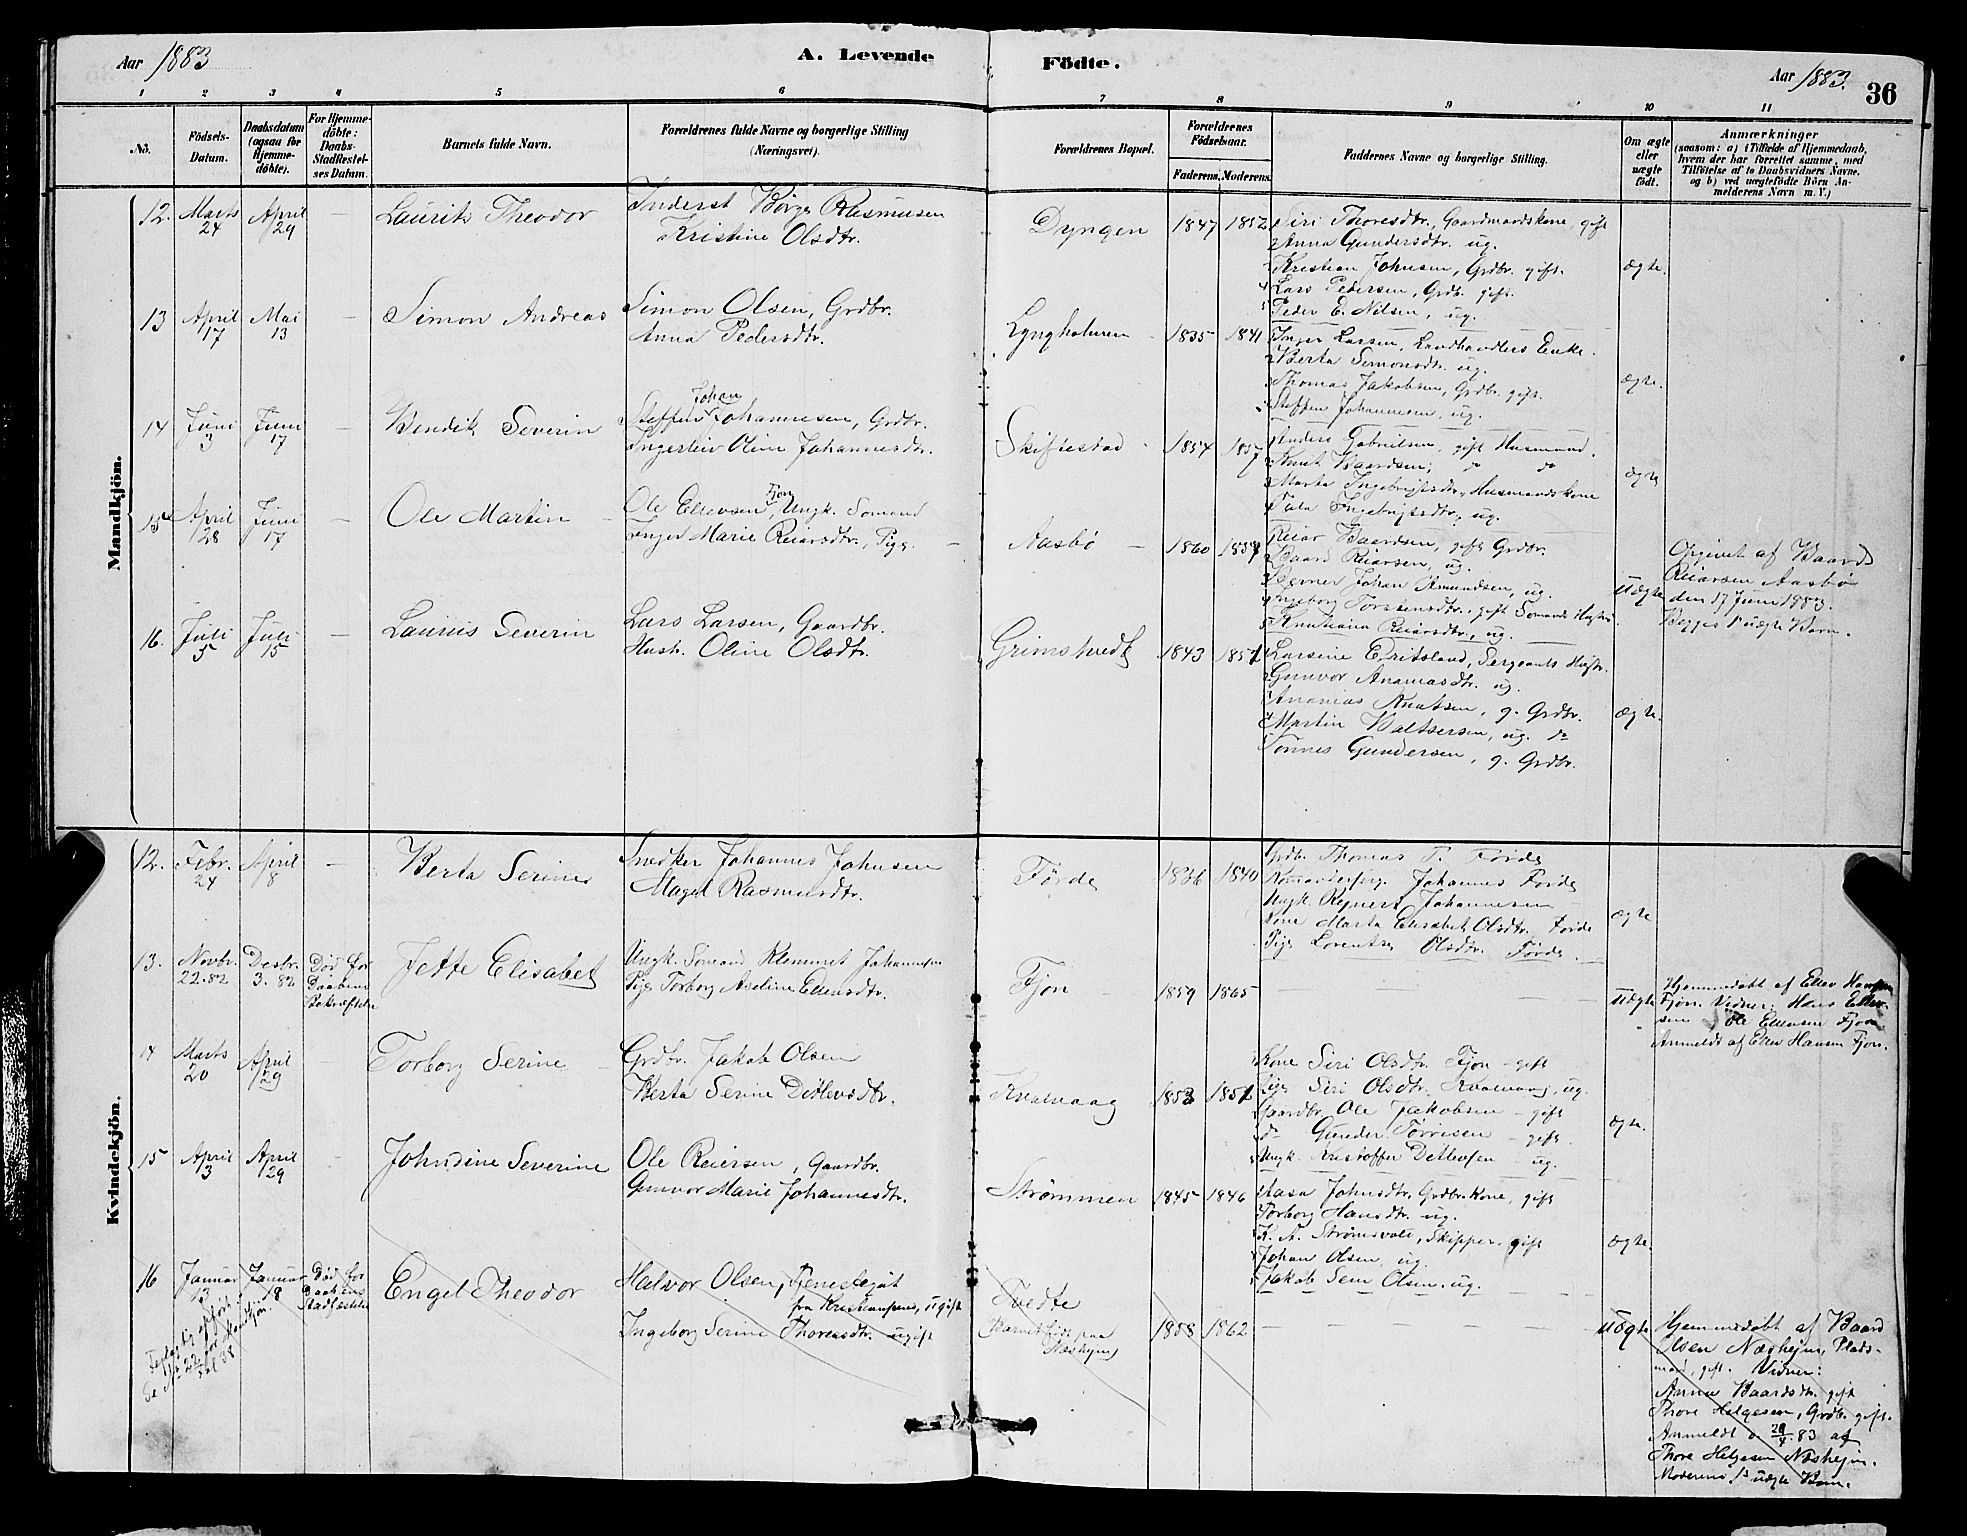 Aar 1883
A. Levende Födte.
Aar 1883.
36
1 2 3 4 5 6 7 8 9 10 11
No.
Födsels-Datum.
Daabsdatum (ogsaa for Hjemme-döbte).
For Hjemme-döbte: Daabs-Stadfæstel-ses Datum.
Barnets fulde Navn.
Forældrenes fulde Navne og borgerlige Stilling (Næringsvei).
Forældrenes Bopæl.
Forældrenes Födselsaar.
Faderens. Moderens.
Faddernes Navne og borgerlige Stilling.
Om ægte eller uægte födt.
Anmærkninger
(saasom: a) i Tilfælde af Hjemmedaab, hvem der har forrettet samme, med Tilföielse af to Daabsvidners Navne, og b) ved uægtefödte Börn An-melderens Navn m. V.)
Mandkjön.
12. Marts 24 April 29 — Laurits Theodor
Inderst Börge Rasmusen
Kristine Olsdtr.
Dyngen 1847 1852
Siri Thoresdtr, Gaardmandskone, gift
2 Anna Gundersdtr. ug.
3 Kristian Johnsen, Grdbr. gift.
4 Lars Pedersen, Grdb. gift.
5 Peder E. Nilsen, ug.
ægte.
13 April 17 Mai 13 — Simon Andreas
Simon Olsen, Grdbr.
Anna Pedersdtr.
Lyngholmen 1835 1841
Inger Larsen, Landhandlers Enke.
2 Berta Simonsdtr. ug.
3 Thomas Jakobsen, Grdbr. gift.
Steffen Johannesen, ug.
ægte.
14 Juni 3 Juni 17 — Bendik Severin
Johan
Steffen Johannesen, Grdbr.
Ingerleiv Oline Johannesdtr.
Skiftestad 1854 1857
Anders Gabrielsen, gift Husmand.
2 Knut Baardsen, do do
3 Marta Ingebrigtsdtr, Husmandskone
4 Tala Ingebrigtsdtr, ug.
ægte
15 April 28 Juni 17 — Ole Martin
Fjon
Ole Ellevsen, Ungk. Sömand
Inger Marie Reiarsdtr., Pige.
Aasbö 1860 1857
Reiar Baardsen, gift Grdbr.
2 Baard Reiarsen, ug.
3 Berner Johan Amundsen, ug.
4 Ingeborg Torstensdtr, gift Sömands Hustr.
5 Kristiana Reiarsdtr., ug.
uægte
Opgivet af Baard
Reiarsen Aasbö
den 17 Juni 1883.
Begges 1ste uægte Barn.
16. Juli 5 Juli 15 — Lauris Severin
Lars Larsen, Gaardbr.
Hust. Oline Olsdtr.
Grimstvedt 1843 1851
Larsine Eritsland, Sergeants Hustr.
2 Gunvor Ananiasdtr. ug.
3 Ananias Knutsen, g. Grdbr.
4 Martin Baltsersen, ug. do
5 Tönnes Gundersen, g. Grdbr.
ægte.
Kvindekjön.
12. Febr. 24 April 8 — Berta Serine
Snedker Johannes Johnsen
Magel Rasmusdtr.
Förde 1836 1840
Grdb. Thomas T. Förde
Johannes Förde
Ungk. Rejnert Johannesen
Kone Marta Elisabet Olsdtr. Förde
Pige Lorentze Olsdtr. Förde.
ægte
13. Novbr. 22.82 Desbr. 3.82 Död för Daabens Bekræftelse Jette Elisabet
Ungk. Sömand Klemmet Johannesen
Pige Torborg Aseline Ellevsdtr.
Fjon 1859 1865
uægte
Hjemmedöbt af Ellev Hansen
Fjon. Vidner: Hans Ellev-
sen Ole Ellevsen Fjon
Anmeldt af Ellev Hansen Fjon.
14 Marts 20 April 29 — Torborg Serine
Grdbr. Jakob Olsen
Berta Serine Detlevsdtr.
Kvalvaag 1853 1851
1 Kone Siri Olsdtr. Fjon — gift
2 Pige Siri Olsdtr. Kvalvaag, ug.
3 Gaardbr. Ole Jakobsen — gift
4 do Gunder Törrisen — gift.
5 Ungk. Kristoffer Detlevsen — ug.
ægte.
15 April 3 April 29 — Johndine Severine
Ole Reiersen, Gaardbr.
Gunvor Marie Johannesdtr.
Strömmen 1845 1846
Aasa Johnsdtr. Grdbr.Kone, gift
Torborg Hansdtr. ug.
K. A. Strömsvold, Skipper. gift
Johan Olsen, ug.
Jakob Sem Olsen. ug.
ægte.
16 Januar 13 Januar 18 Död för Daabens Stadfæstelse Engel Theodor
Feilagtig opfört.
Se No 22 for Mandkjön.
Fol 38
Halvor Olsen, Tjenestegut
fra Kristiansand, ugift
Ingeborg Serine Thoresdtr. ugift
Tvedte
Barnet födt paa
Næshejm
1858 1862
uægte
Hjemmedöbt af Baard
Olsen Næshejm, Plads-
mand, gift. Vidner:
Anne Baardsdtr. gift
Thore Helgesen, Grdb. gift.
Anmeldt d. 29/4.83 af
Thore Helgesen Næshejm.
Moderens 1ste uægte Barn.